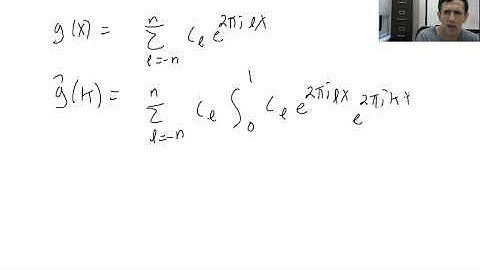 g(x) = \sum_{l=-n}^{n} c_l e^{2πilx}
ĝ(k) = \sum_{l=-n}^{n} c_l \int_0^1 c_l e^{2πilx} e^{2πikx}